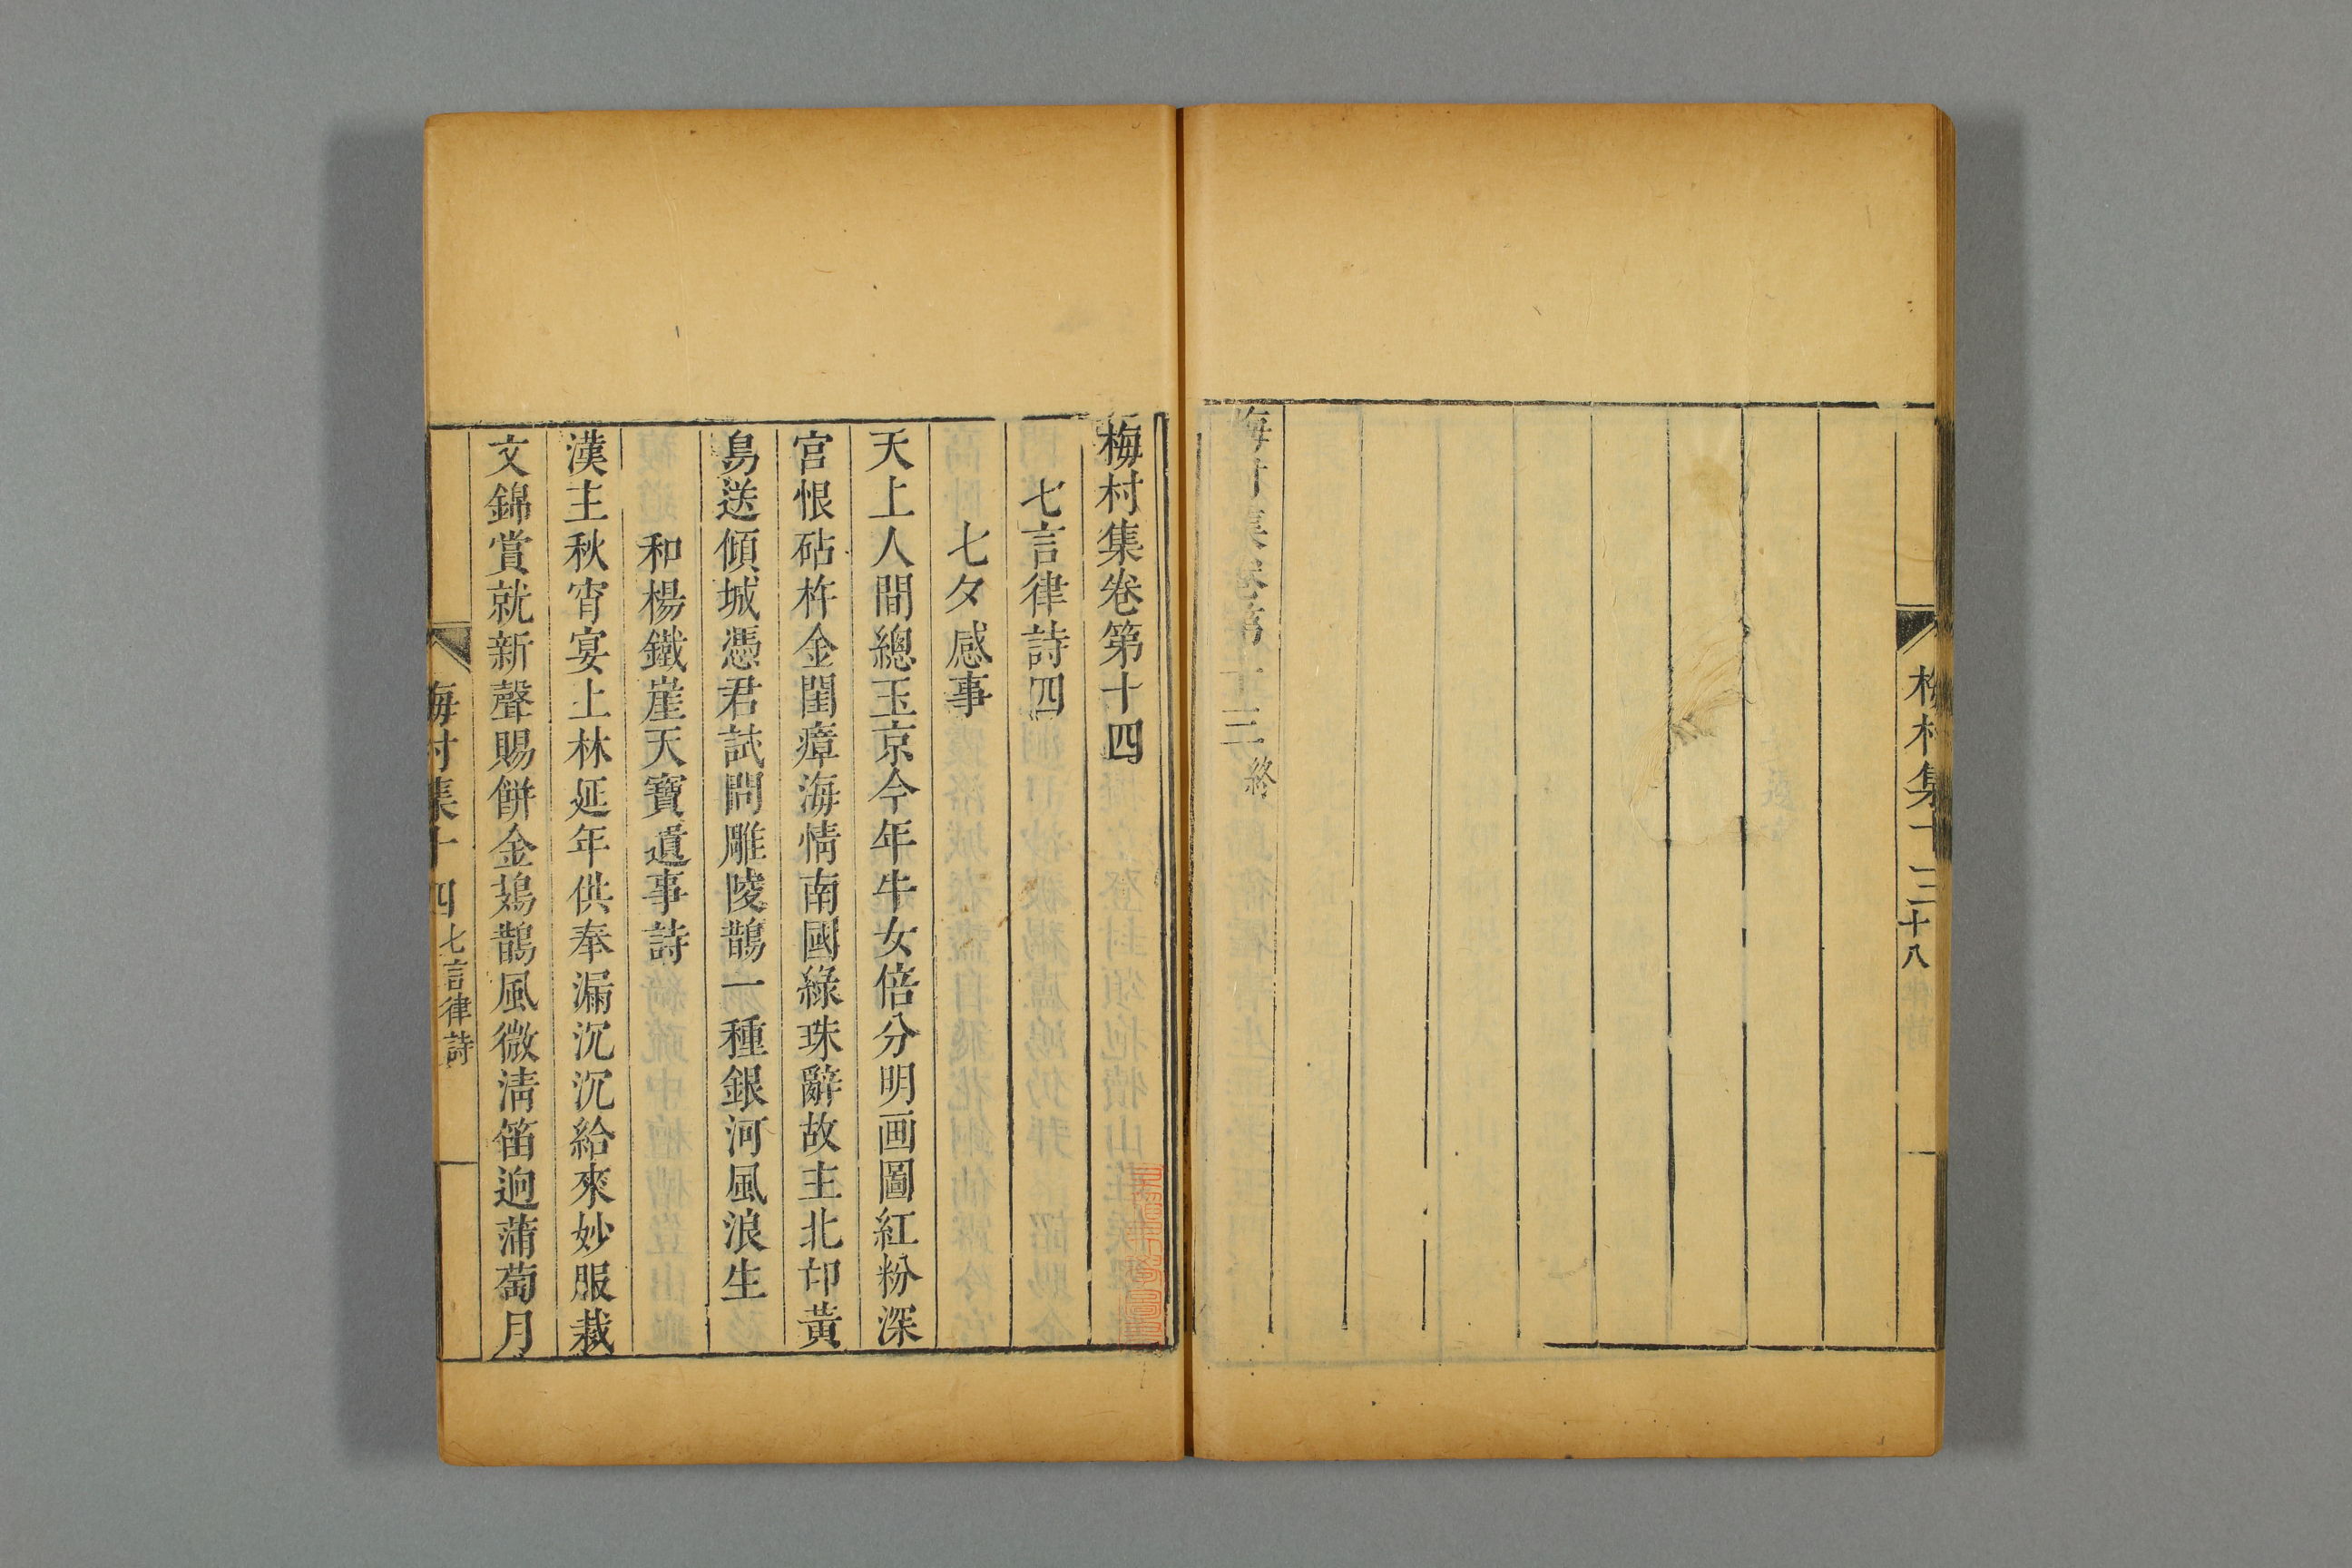 梅村集十三
十八
梅村集卷第十三終
梅村集卷第十四
七言律詩四
七夕感事
天上人間總玉京今年牛女倍分明画圖紅粉深
宮恨砧杵金閨瘴海情南國綠珠辭故主北邙黃
鳥送傾城憑君試問雕陵鵲一種銀河風浪生
和楊鐵崖天寶遺事詩
漢主秋宵宴上林延年供奉漏沉沉給來妙服裁
文錦賞就新聲賜餅金鳷鵲風微清笛逈蒲萄月
梅村集十四
七言律詩